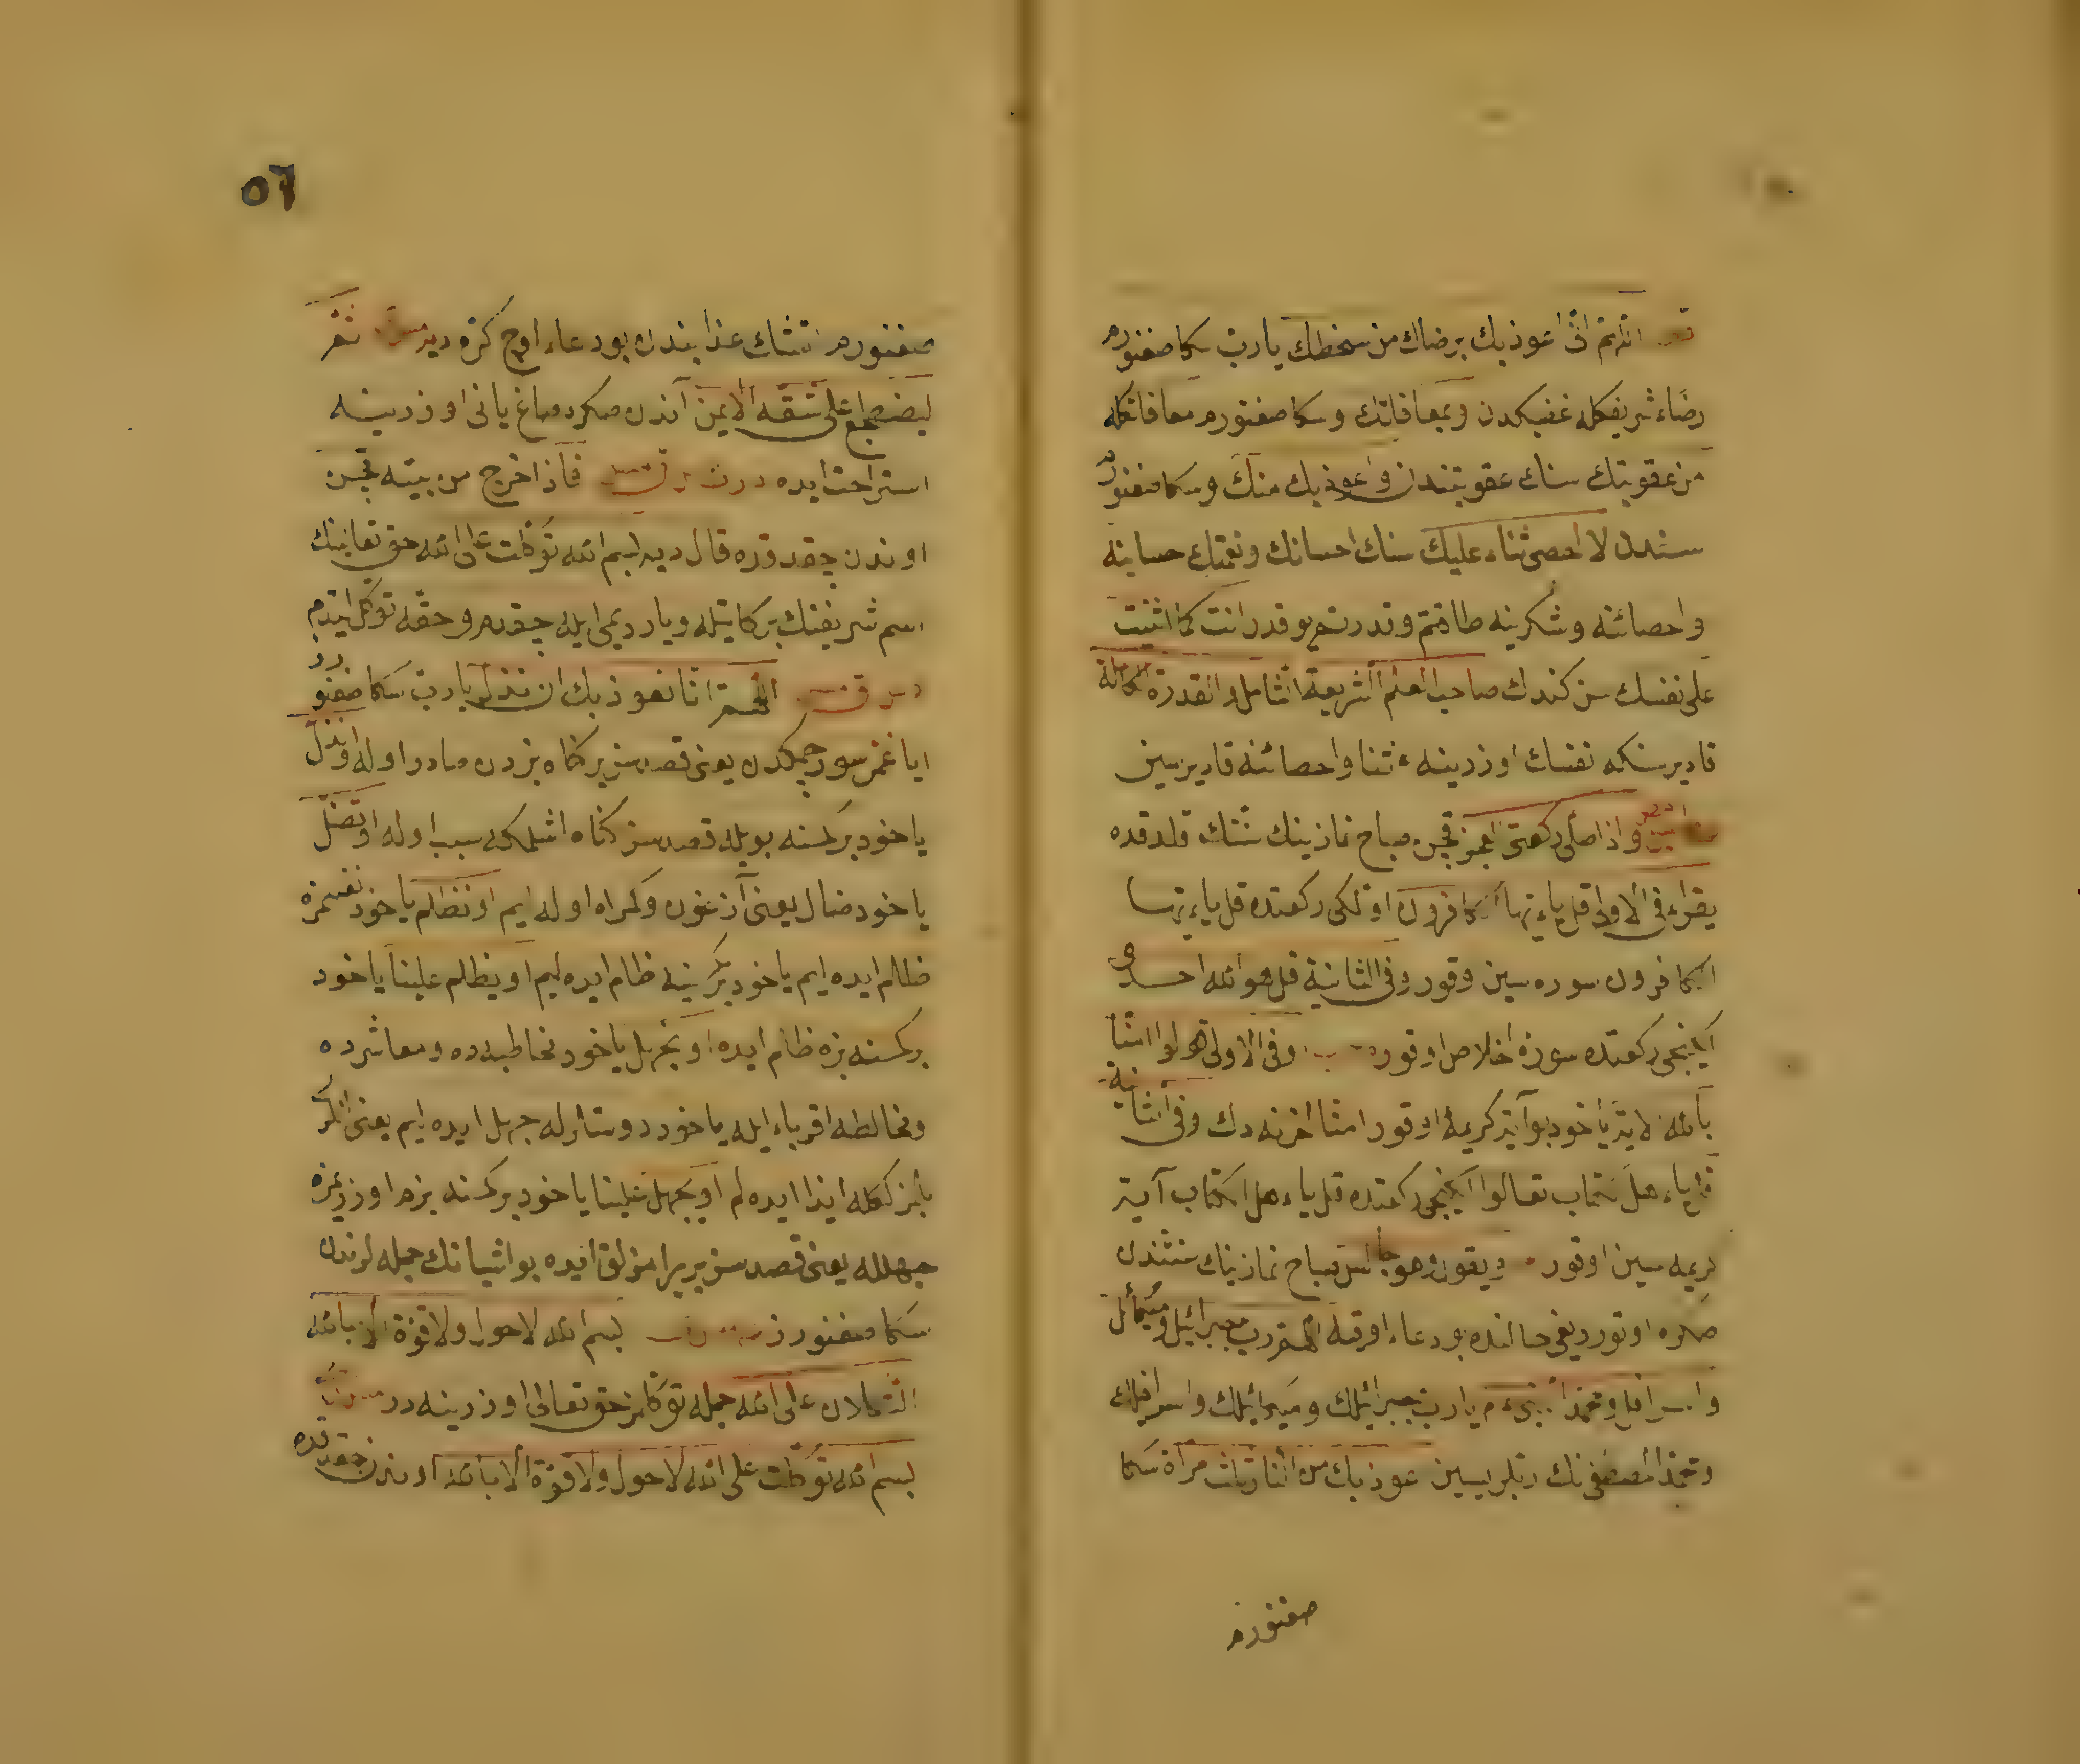 اللهم انى اعوذ بك برضاك من سخطك يا رب سكا صغنورم
رضاء شريفكله غضبكدن وبمعافاتك وسكا صغنورم معافاتكله
من عقوبتك سنك عقوبتندن واعوذ بك منك وسكا صغنورم
سندن لا احصى ثناء عليك سنك احسانك ونعمتك حسابنه
واحصائنه وشكرينه طاقتم وقدرتم يوقدر انت كما اثنيت
على نفسك سن كندك صاحب العلم الشريعة الشامل والقدرة الكاملة
قاديرسنكه نفسك اوزرينه ثنا واحصائنه قاديرسين
واذا صلى ركعتى الفجر قچن صباح نمازينك سنتك قلدقده
يقراء فى الاولى قل ياء يها الكافرون اولكى ركعتده قل ياء يها
الكافرون سوره سين اوقور وفى الثانية قل هو الله احد
ايكنجى ركعتده سورۀ اخلاص اوقور وفى الاولى قولوا امنا
بالله الاية ياخود بو آيت كريمۀ اوقور امنا اخرنه دك وفى الثانية
قل ياء هل الكتاب تعالوا ايكنجى ركعتده قل ياء هل الكتاب آيت
كريمه سين اوقور ويقول وهو جالس صباح نمازينك سنتندن
صكره اوتوردیغى حالنده بو دعاء اوقيه اللهم رب جبرائيل وميكائيل
واسرافيل ومحمد النبىء م يا رب جبرائيلك وميكائيلك واسرافيلك
ومحمد المصطفى نك ربلريسين اعوذ بك من النار ثلث مراة سكا
صغنورم
٥٦
صغنورم اتشك عذابندن بو دعاء اوچ كره دير ثم
ليضطجع على شقه الايمن آندن صكره صاغ يانى اوزرينه
استراحت ايده فاذا خرج من بيته قچن
اوندن چقدقده قال دير بسم الله توكلت على الله حق تعالينك
اسم شريفنك بركاتيله وياردیمى ايله چقدم وحقه توكل ايتدم
اللهم انا نعوذ بك ان نزل يا رب سكا صغنورز
اياغمز سورچمكدن يعنى قصدسز بر كناه بزدن صادر اوله او نزل
ياخود بر كسنه بويله قصدسز كناه اشلمكه سبب اوله او نضل
ياخود ضال يعنى آزغون وكمراه اوله ايم او نظلم ياخود نفسمزه
ظالم ايده ايم ياخود بر كسنيه ظلم ايده ليم او يظلم علينا ياخود
بر كسنه بزه ظلم ايده او نجهل ياخود مخاطبه ده ومعاشرده
ومخالطه اقرباء ايله ياخود دوستلرله جهل ايده ايم يعنى انلر
ايذا ايده لم او يجهل علينا ياخود بر كسنه بزم اوزريمزه
جهلله يعنى قصدسز بر يرامزلق ايده بو اشيانك جمله لرندن
سكا صغنورز بسم الله لا حول ولا قوة الا بالله
التكلان على الله جمله توكلمز حق تعالى اوزرينه در
بسم الله توكلت على الله لا حول ولا قوة الا بالله اوندن چقدقده